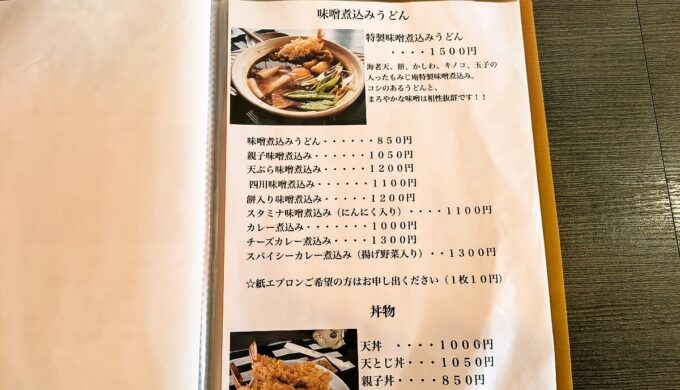 味噌煮込みうどん
特製味噌煮込みうどん
・・・・１５００円
海老天、餅、かしわ、キノコ、玉子の
入ったもみじ庵特製味噌煮込み。
コシのあるうどんと、
まろやかな味噌は相性抜群です！！
味噌煮込みうどん・・・・・・８５０円
親子味噌煮込み・・・・・１０５０円
天ぷら味噌煮込み・・・・・１２００円
四川味噌煮込み・・・・・１１００円
餅入り味噌煮込み・・・・・１２００円
スタミナ味噌煮込み（にんにく入り）・・・・１１００円
カレー煮込み・・・・・・・１０００円
チーズカレー煮込み・・・・１３００円
スパイシーカレー煮込み（揚げ野菜入り）・・１３００円
☆紙エプロンご希望の方はお申し出ください（１枚１０円）
丼物
天丼 ・・・・１０００円
天とじ丼・・・１０５０円
親子丼・・・・８５０円